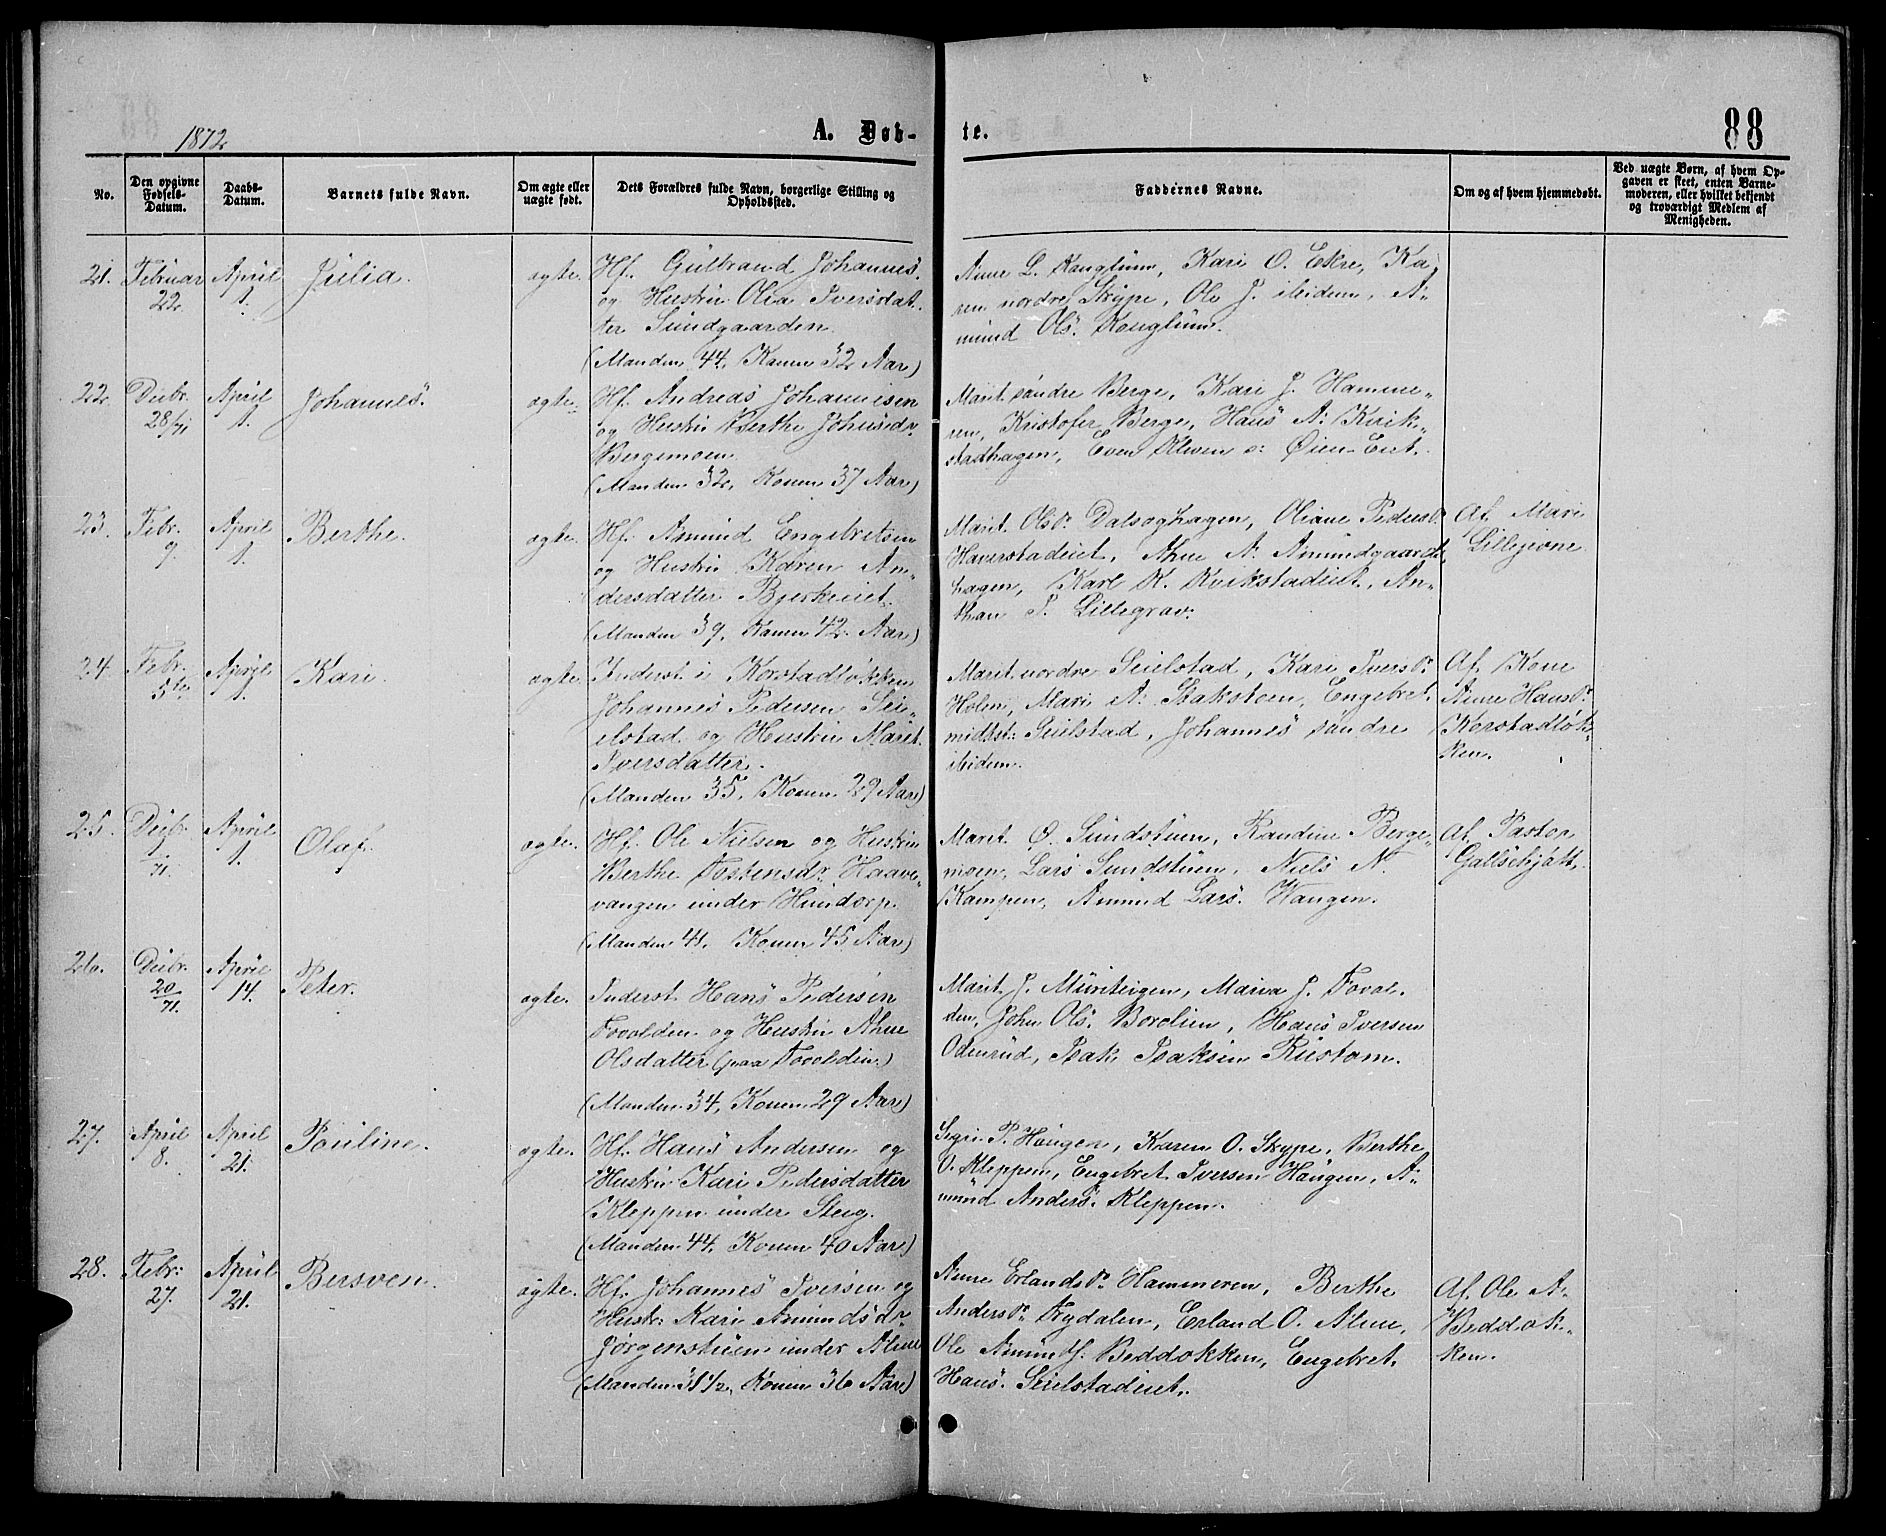 1872
A. Døb-
te.
88
No.
Den opgivne Fødsels-Datum.
Daabs-Datum.
Barnets fulde Navn.
Om ægte eller uægte født.
Dets Forældres fulde Navn, borgerlige Stilling og Opholdssted.
Faddernes Navne.
Om og af hvem hjemmedøbt.
Ved uægte Børn, af hvem Opgaven er skeet, enten Barnemoderen, eller hvilket bekjendt og troværdigt Medlem af Menigheden.
21. Februar 22. April 1. Julia. ægte.
Hf. Gulbrand Johannes.
og Hustru Olia Iversdat-
ter Sundgaarden.
(Manden 44, Konen 32 Aar)
Anne L. Konglum, Kari O. Ekre, Ka-
ren nordre Skype, Ole J. ibidem, A-
mund Ols. Konglum.
22. Decbr. 28/71 April 1. Johannes. ægte.
Hf. Andreas Johannesen
og Hustru Berthe Johnsdr.
Bergemoen.
(Manden 32, Konen 37 Aar)
Marit søndre Berge, Kari J. Hamme-
ren, Kristofer Berge, Hans A. Kirik-
stadhagen, Even Kleven o: Øien Eiet.
23. Febr. 9. April 1. Berthe. ægte.
Hf. Amund Engebretsen
og Hustru Karen An-
dersdatter Bjerkeeiet.
(Manden 39, Konen 42 Aar)
Marit Olsdr. Dalseghagen, Oliane Pedersdr.
Haverstadeiet, Ahne A. Amundgaard-
hagen, Karl K. Kvikstadeiet, An-
than P. Lillegrav.
Af Mari
Lillejevne.
24. Febr. 5te April 1. Kari. ægte.
Inderst i Korstadløkken
Johannes Pedersen Sei-
elstad og Hustru Marit
Iversdatter.
(Manden 35, Konen 29 Aar)
Marit nordre Seielstad, Kari Iversdr.
Holen, Mari A. Stakstoen, Engebret
midtst: Seielstad, Johannes søndre
ibidem.
Af Kone
Anne Hansdr.
Korstadløk-
ken.
25. Decbr. 1/71. April 1. Olaf. ægte.
Hf. Ole Nielsen og Hustru
Berthe Tostensdr. Haave-
vangen under Hundorp.
(Manden 41, Konen 45 Aar)
Marit O. Sundstuen, Randine Berge-
moen, Lars Sundstuen, Niels N.
Kampen, Amund Lars. Vangen.
Af Pastor
Gallschjøtt.
26. Decbr. 20/71. April 14. Peter. ægte.
Inderst Hans Pedersen
Fovolden og Hustru Ahne
Olsdatter (paa Fovolden.)
(Manden 34, Konen 29 Aar)
Marit J. Munsteigen, Maria J. Fovol-
den, John Ols. Borelien, Hans Iversen
Odenrud, Isak Isaksen Rustam.
27. April 8. April 21. Pauline. ægte.
Hf. Hans Andersen og
Hustru Kari Pedersdatter
Kleppen under Steig.
(Manden 44, Konen 40 Aar)
Segri P. Haugen, Karen O. Skype, Berthe
O. Kleppen, Engebret Iversen Haugen, A-
mund Anders. Kleppen.
28. Febr: 27. April 21. Bersven. ægte.
Hf. Johannes Iversen og
Hustr. Kari Amundsdr.
Jørgenstuen under Alme
(Manden 31 1/2, Konen 36 Aar)
Anne Erlandsdr. Hammeren, Berthe
Andersdr. Frydalen, Erland O. Alme,
Ole Amunds. Beddokken, Engebret
Hans. Seielstadeiet.
Af Ole A.
Beddok-
ken.